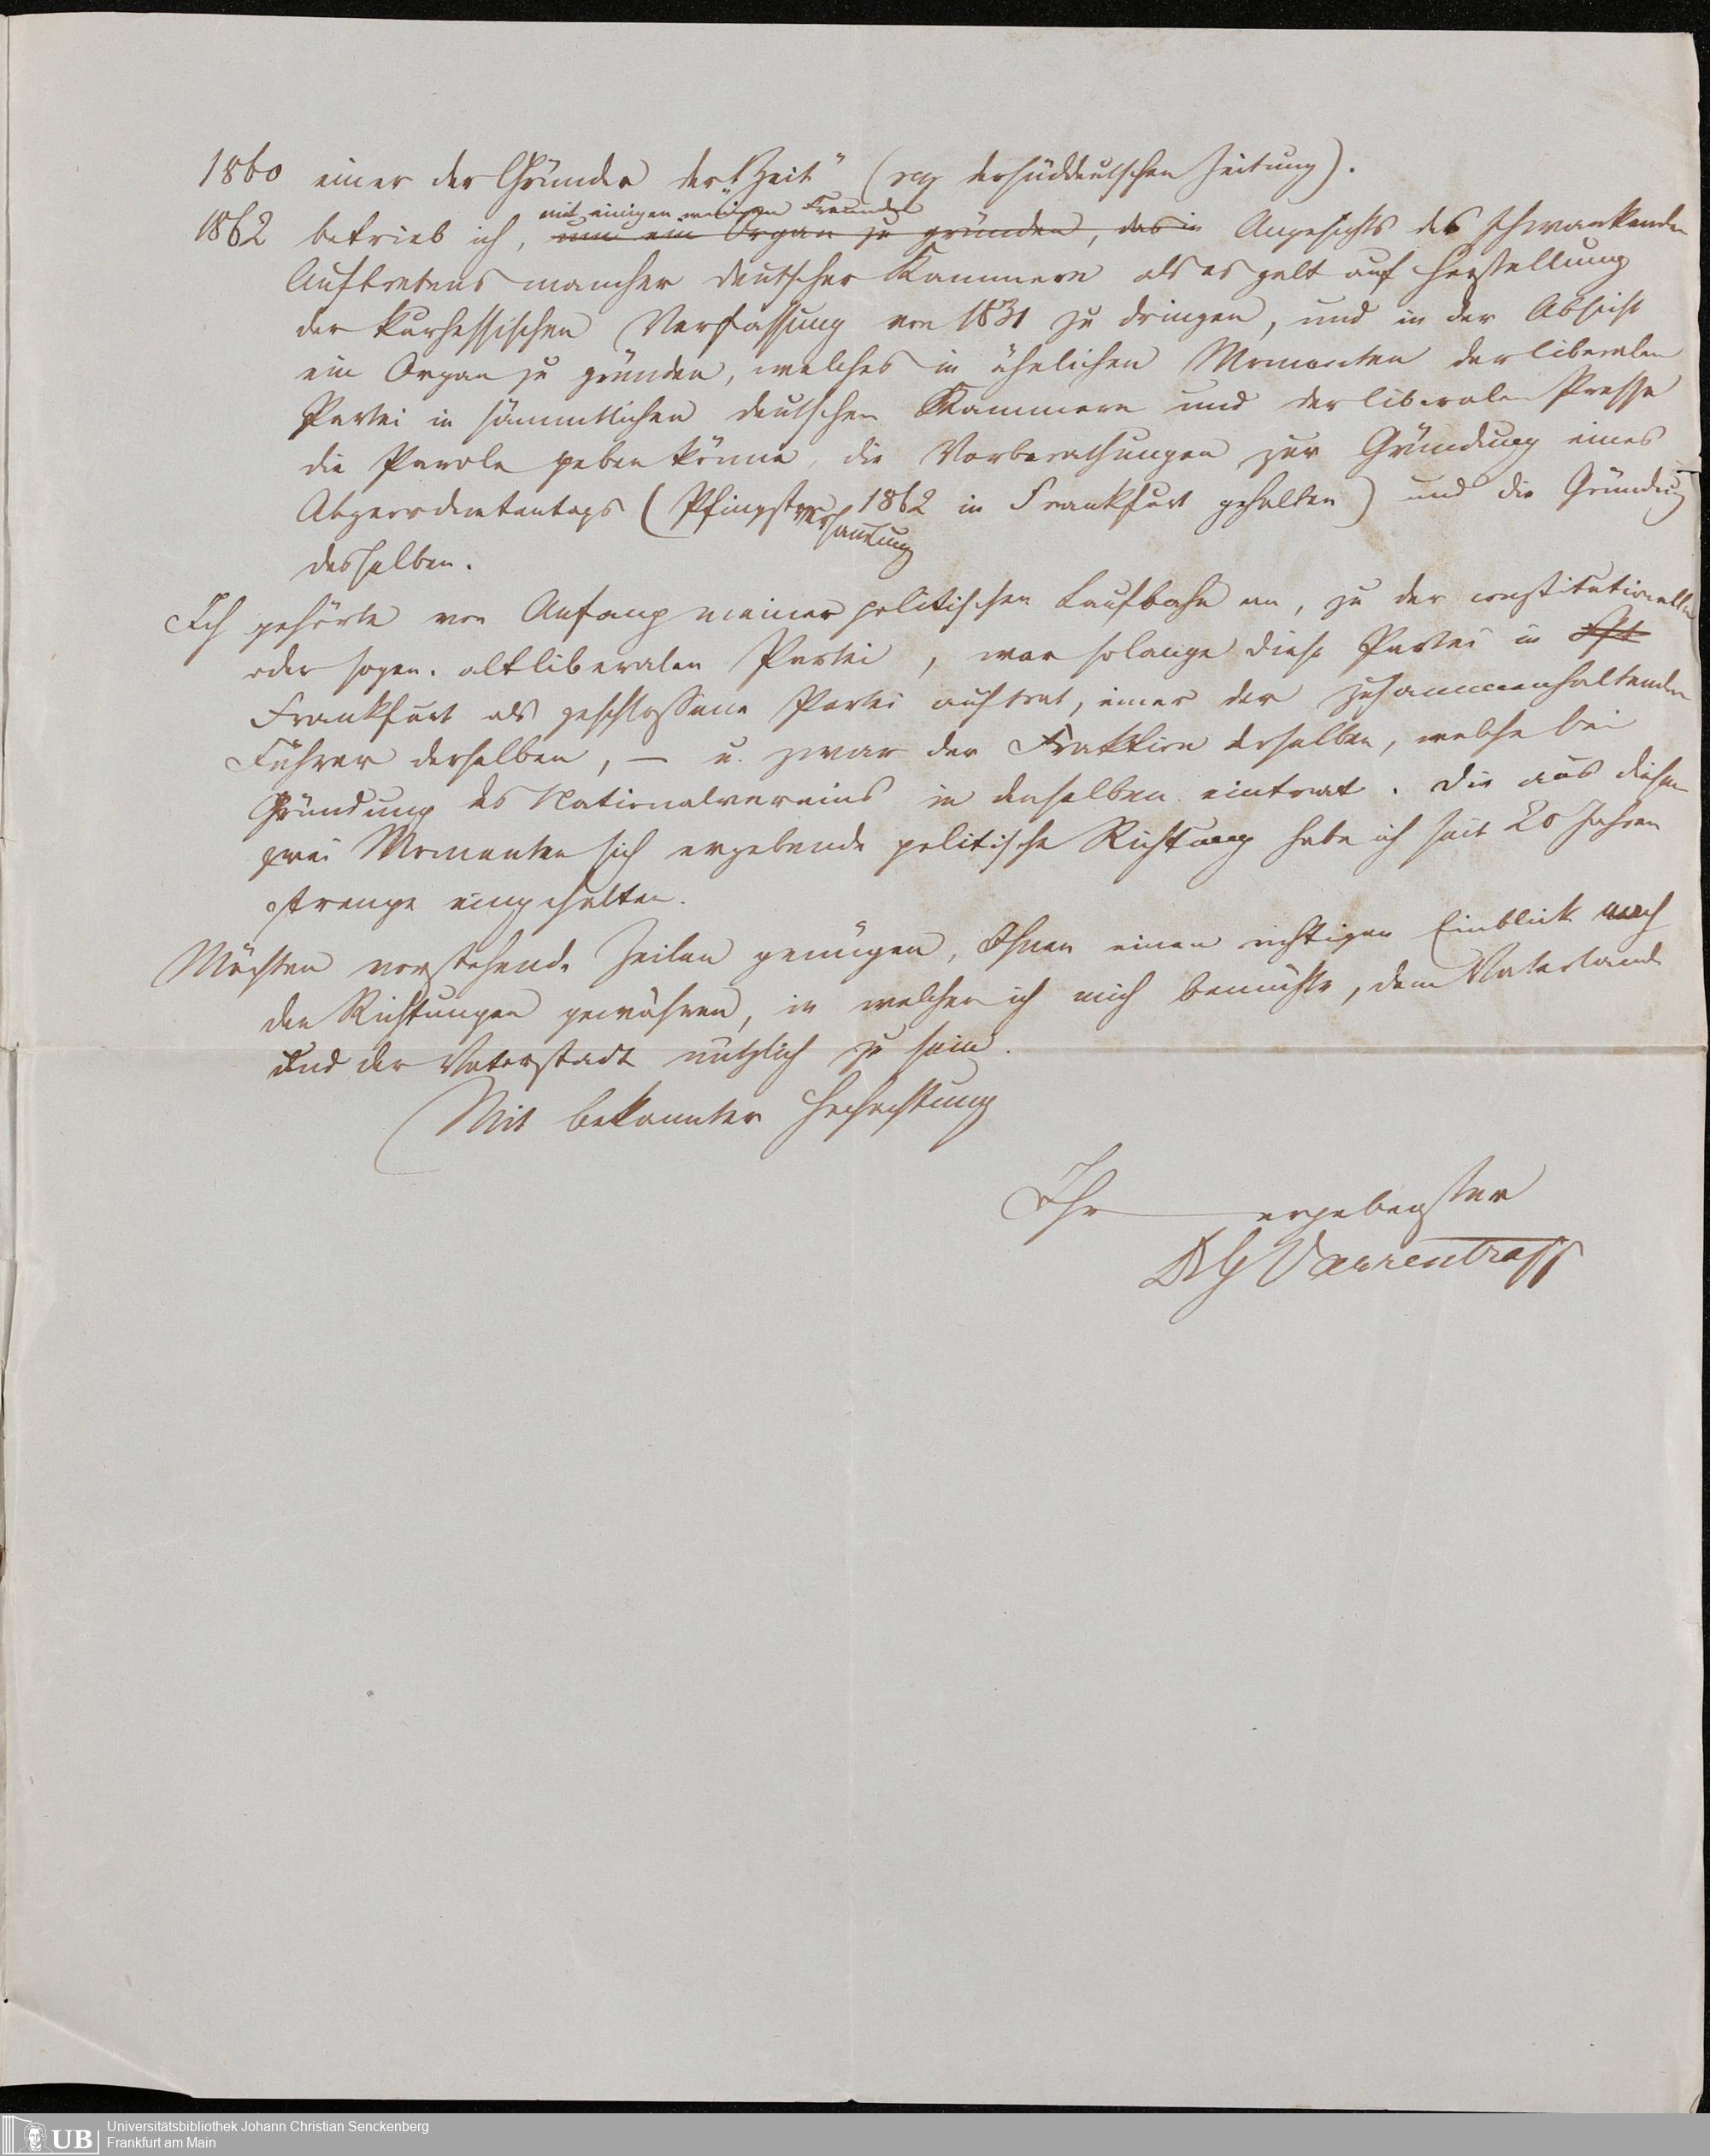 1860 einer der Gründer der „Zeit“ (resp der süddeutschen Zeitung).
mit einigen wenigen Freunden
1862 betrieb ich, um ein Organ zu gründen, das in Angesichts des schwankenden
Auftretens mancher deutscher Kammern als es galt auf Herstellung
der kurhessischen Verfassung von 1831 zu dringen, und in der Absicht
ein Organ zu gründen, welches in ähnlichen Momenten der liberalen
Partei in sämmtlichen deutschen Kammern und der liberalen Presse
die Parole geben könne, die Vorberathungen zur Gründung eines
Abgeordnetentags (Pfingstversammlung 1862 in Frankfurt gehalten) und die Gründung
desselben.
Ich gehörte von Anfang meiner politischen Laufbahn an, zu der constitutionellen
oder sogen. altliberalen Partei, war solange diese Partei in
Frankfurt als geschlossene Partei auftrat, einer der zusammenhaltenden
Führer derselben, — u. zwar der Fraktion derselben, welche bei
Gründung des Nationalvereins in denselben eintrat. Die aus diesen
zwei Momenten sich ergebende politische Richtung habe ich seit 20 Jahren
strenge eingehalten.
Möchten vorstehende Zeilen genügen, Ihnen einen richtigen Einblick nach
den Richtungen gewähren, in welchen ich mich bemühte, dem Vaterlande
und der Vaterstadt nützlich zu sein.
Mit bekannter Hochachtung
Ihr ergebenster
Dr G Varrentrapp
UB Universitätsbibliothek Johann Christian Senckenberg
Frankfurt am Main